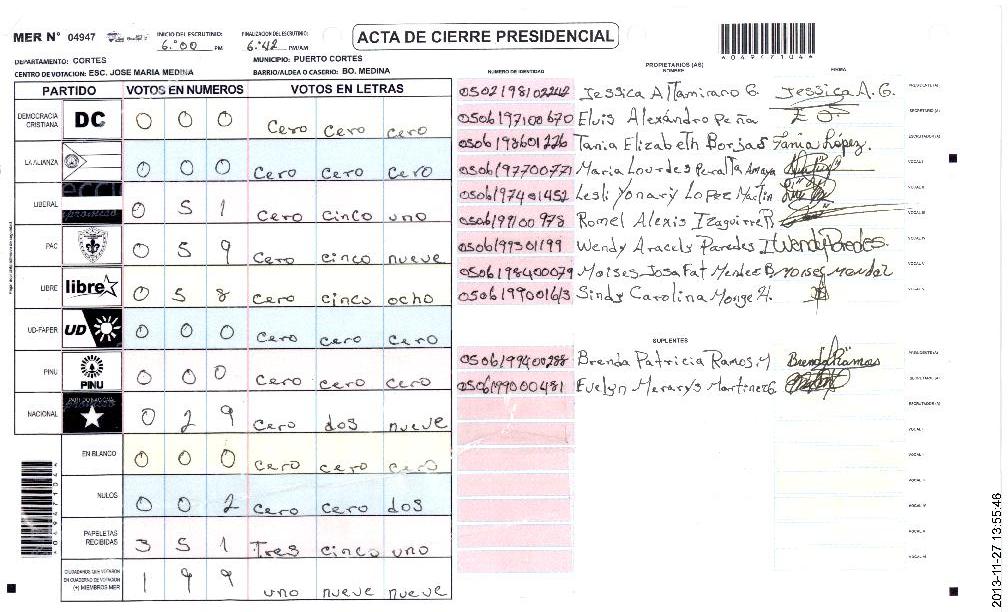 MER N° 04947 INICIO DEL ESCRUTINIO: 6:00 PM FINALIZACION DEL ESCRUTINIO: 6:42 PM/AM ACTA DE CIERRE PRESIDENCIAL
DEPARTAMENTO: CORTES MUNICIPIO: PUERTO CORTES
CENTRO DE VOTACION: ESC. JOSE MARIA MEDINA BARRIO/ALDEA O CASERIO: BO. MEDINA
PARTIDO VOTOS EN NUMEROS VOTOS EN LETRAS
DEMOCRACIA CRISTIANA DC 0 0 0 Cero Cero cero
LA ALIANZA 0 0 0 Cero Cero Cero
LIBERAL 0 5 1 Cero Cinco uno
PAC 0 5 9 Cero cinco nueve
LIBRE libre 0 5 8 Cero cinco ocho
UD-FAPER UD 0 0 0 Cero Cero Cero
PINU PINU 0 0 0 Cero Cero Cero
NACIONAL 0 2 9 Cero dos nueve
EN BLANCO 0 0 0 Cero cero cero
NULOS 0 0 2 Cero Cero dos
PAPELETAS RECIBIDAS 3 5 1 Tres cinco uno
CIUDADANOS QUE VOTARON EN CUADERNO DE VOTACION (+) MIEMBROS MER 1 9 9 uno nueve nueve
PROPIETARIOS (AS)
NUMERO DE IDENTIDAD NOMBRE FIRMA
0502198102242 Jessica Altamirano G. Jessica A. G. PRESIDENTE(A)
0506197100670 Elvis Alexandro Peña SECRETARIO(A)
0506198601226 Tania Elizabeth Borjas Tania López. ESCRUTADOR(A)
0506197700771 Maria Lourdes Peralta Amaya VOCAL I
0506197401452 Lesli Yonary Lopez Martin VOCAL II
0506199100978 Romel Alexis Izaguirre B VOCAL III
0506199301199 Wendy Aracely Paredes I WendyParedes. VOCAL IV
0506198400079 Moises Josa Fat Mendez B Moises Mendez VOCAL V
0506199001613 Sindy Carolina Monge H.
SUPLENTES
0506199400288 Brenda Patricia Ramos M Brenda Ramos PRESIDENTE(A)
0506199000481 Evelyn Merarys Martinez G SECRETARIO(A)
ESCRUTADOR(A)
VOCAL I
VOCAL II
2013-11-27 13:55:46